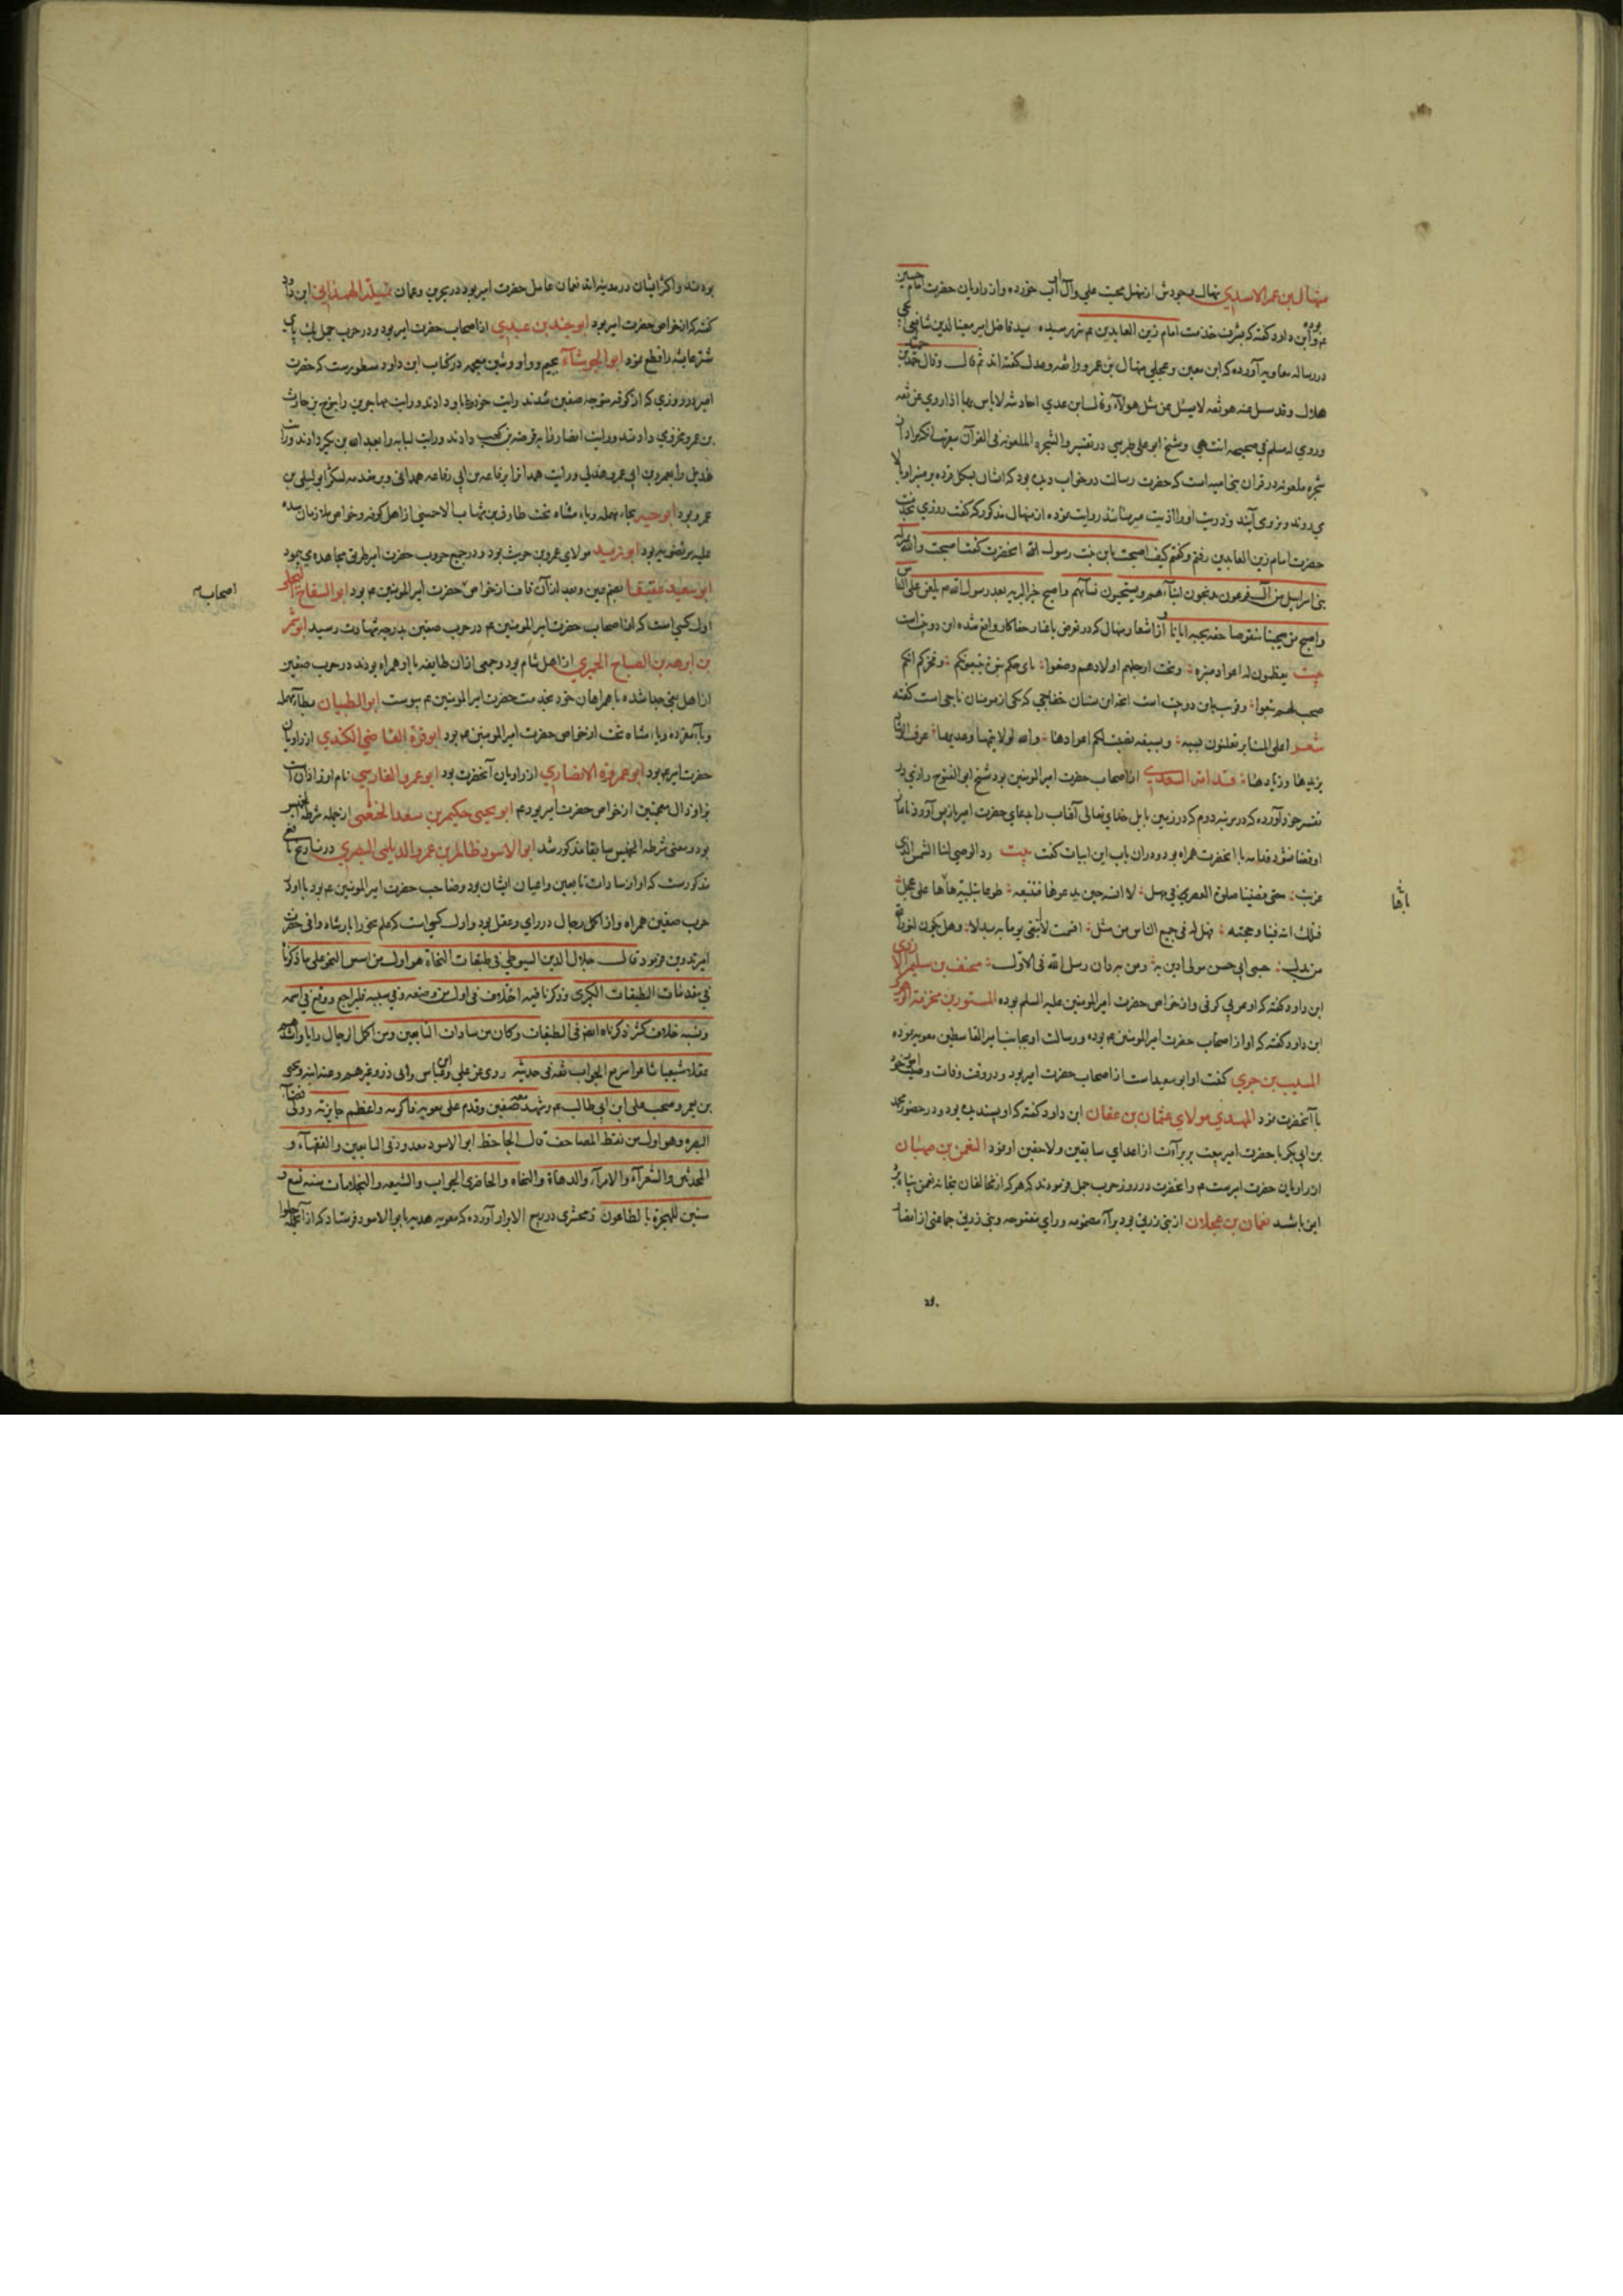 منهال بن عمر الاسدي نهال وجودش از منهل محبت علي وآل او آب خورده واز راويان حضرت امام حسين
عم بوده وابن داود كفته كه بشرف خدمت امام زين العابدين عم نيز رسيده سيد فاضل امير معين الدين
در رساله معاويه آورده كه ابن معين وعجلي منهال بن عمرو را ثقه وعدل كفته اند ثم قال وقال
هلال وقد سئل عنه هو ثقه لا يسئل عن مثل هولآء وقال ابن عدي احاديثه لا باس بها اذا روي عن ثقه
وروي له مسلم في صحيحه انتهي وشيخ ابو علي طبرسي در تفسير والشجرة الملعونه في القرآن
شجره ملعونه در قران بني اميه است كه حضرت رسالت در خواب ديده بود كه ايشان بشكل قرده بر منبر او بالا
مي روند وبزير مي آيند وذريت او را اذيت ميرسانند روايت نموده از منهال مذكور كه كفت روزي بخدمت
حضرت امام زين العابدين رفتم وكفتم كيف اصبحت يابن بنت رسول الله انحضرت كفت اصبحت والله بمنزلة
بني اسرايل من آل فرعون يذبحون ابنآءهم ويستحيون نسآئهم واصبح خير البريه بعد رسول الله يلعن علي المنابر
واصبح من يحبنا منقوصا حقه بحبه ايانا واز اشعار منهال كه در
بيت يعظمون له اعواد منبره وتحت ارجلهم اولادهم وضعوا باي حكم بنوه يتبعونكم وفخركم انكم
صحب لهم تبع وقريب باين دو بيت است انچه ابن سنان خفاجي كه يكي از مومنان ناجي است كفته
شعر اعلي المنابر تعلنون بسبه وبسيفه نصبت لكم اعوادها والله لولا تيمها وعديها عرف
يزيدها وزيادها قدامة السعدي از اصحاب حضرت امير المومنين بود شيخ ابو الفتوح رازي در
تفسير خود آورده كه در مرتبه دوم كه در زمين بابل خداي تعالى آفتاب را بدعاي حضرت امير باز پس آورد تا نماز
او قضا نشود قدامه با انحضرت همراه بود ودران باب اين ابيات كفت بيت رد الوصي لنا الشمس التي
غربت حتى قضينا صلوة العصر في مهل لا انسه حين يدعوها فتتبعه طوعا بتلبية هاها على عجل
فتلك ايته فينا وحجته فهل له في جميع الناس من مثل اقسمت لا ابتغي يوما به بدلا وهل يكون لنور الله
من بدل حسبي ابي حسن مولى ادين به ومن به دان رسل الله في الاول مخنف بن سليم الازدي
ابن داود كفته كه او عربي كوفي واز خواص حضرت امير المومنين عليه السلم بوده المستورد بن مخرمة
ابن داود كفته كه او از اصحاب حضرت امير المومنين عم بوده ورسالت او بجانب امير القاسطين معويه بوده
المسيب بن حزن كفت او ابو سعيد است از اصحاب حضرت امير بود ودر وقت وفات وصيت
با آنحضرت نمود المهدي مولاي عثمان بن عفان ابن داود كفته كه او پسنديده بود ودر حضور محمد
بن ابي بكر با حضرت امير بيعت بر برآءت از اعداي سابقين ولاحقين او نمود النعمن بن صهبان
از راويان حضرت امير ست عم وانحضرت در روز حرب جمل فرمودند كه هر كه از مخالفان بخانه نعمن پناه برد
ايمن باشد نعمان بن عجلان از بني زريق بود برآء مضمومه وراي مفتوحه وبني زريق جماعتي از انصار
باثها
بوده اند واكثر ايشان در مدينه اند نعمان عامل حضرت امير بود در بحرين وعمان الهمداني ابن داود
كفته كه از خواص حضرت امير بود ابو جند بن عبدي از اصحاب حضرت امير بود ودر حرب جمل يك پاي
شتر عايشه را قطع نمود ابو الجوشاء بجيم وواو وشين معجمه در كتاب ابن داود مسطورست كه حضرت
امير در روزي كه از كوفه متوجه صفين شدند رايت خود را باو دادند ورايت مهاجرين را بنوح بن حارث
بن عمرو مخزومي دادند ورايت انصار را به قرضه بن كعب دادند ورايت كنانه را بعبد الله بن بكير دادند ورايت
هذيل را بعمرو بن ابي عمرو هذلي ورايت همدان را برفاعه بن ابي رفاعه همداني وبر مقدمه لشكر ابو ليلى بن
عمرو بود ابو حيه بحاء مهمله وياء مثناه تحت طارق بن شهاب الاحمسي از اهل كوفه وخواص ملازمان سده
عليه مرتضويه بود ابو زيد مولاي عمرو بن حريث بود ودر جميع حروب حضرت امير طريق مجاهده مي پيمود
ابو سعيد عقيصا بفتح عين وبعد ازآن قاف از خواص حضرت امير المومنين عم بود ابو السفاح البجلي
اول كسي است كه از اصحاب حضرت امير المومنين عم در حرب صفين بدرجه شهادت رسيد ابو شمر
بن ابرهه بن الصباح الحميري از اهل شام بود وجمعي ازان طايفه با او همراه بودند در حرب صفين
از اهل بغي جدا شده با همراهان خود بخدمت حضرت امير المومنين عم پيوست ابو الظبيان بطآء مهمله
وبآء مفرده وياء مثناه تحت از خواص حضرت امير المومنين عم بود ابو قرة القاضي الكندي از راويان
حضرت امير عم بود ابو عمرة الانصاري از راويان آنحضرت بود ابو عمرو الفارسي نام او زاذان است
بزا وذال معجمتين از خواص حضرت امير بود عم ابو يحيى حكيم بن سعد الحنفي از جمله شرطة الخميس
بود ومعني شرطة الخميس سابقا مذكور شد ابو الاسود ظالم بن عمرو الديلمي البصري در تاريخ يافعي
مذكورست كه او از سادات تابعين واعيان ايشان بود ومصاحب حضرت امير المومنين عم بود با او در
حرب صفين همراه واز اكمل رجال در راي وعقل بود واول كسي است كه علم نحو را بارشاد وافي حضرت
امير تدوين فرمود قال جلال الدين السيوطي في طبقات النحاة هو اول من اسس النحو على ما ذكرنا
في مقدمات الطبقات الكبرى وذكرنا فيه اختلاف في اول من وضعه وفي سببه فليراجع ووقع في اسمه
ونسبه خلاف كثير ذكرناه ايضا في الطبقات وكان من سادات التابعين ومن اكمل الرجال رايا واشدهم
عقلا شيعيا شاعرا سريع الجواب ثقه في حديثه روى عن علي وابن عباس وابي ذر وغيرهم وعنه ابنه ويحيى
بن يعمر وصحب علي ابن ابي طالب عم وشهد معه صفين وقدم على معويه فاكرمه واعظم جايزته وولي قضآء
البصره وهو اول من نقط المصاحف قال الجاحظ ابو الاسود معدود في التابعين والفقهآء و
المحدثين والشعرآء والامرآء والدهاة والنحاه والحاضري الجواب والشيعه والبخلا مات سنه تسع و
سنين للهجرة بالطاعون زمخشري در ربيع الابرار آورده كه معويه هديه بابو الاسود فرستاد كه ازآنجمله حلوا
اصحاب